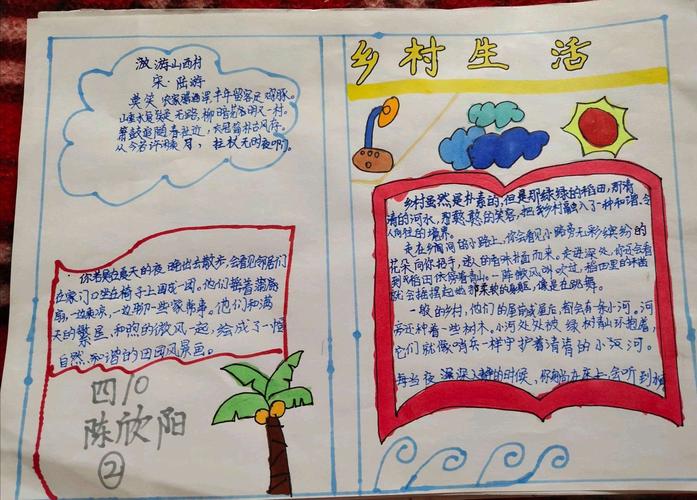 游山西村
宋·陆游
莫笑农家腊酒浑丰年留客足鸡豚。
山重水复疑无路,柳暗花明又一村。
箫鼓追随春社近,衣冠简朴古风存。
从今若许闲乘月,拄杖无时夜叩门。
乡村生活
乡村虽然是朴素的,但是那绿绿的稻田,那清
清的河水,那憨憨的笑容,把乡村融入了一种和谐,令
人向往的境界。
走在乡间的小路上,你会看见小路旁五彩缤纷的
花朵向你招手,迷人的香味扑面而来。走进深处,你还会看
到稻田依偎着青山。一阵微风吹过,稻田里的
就会摇摆起他那柔软的身躯,像是在跳舞。
一般的乡村,他们的屋前或屋后,都会有一条小河。河
旁还种着一些树木。小河处处被绿树青山环抱着,
它们就像哨兵一样守护着清清的小河。
每当夜深人静的时候,你躺在床上,会听到
你若是在夏天的夜晚出去散步,会看见邻居们
在家门口坐在椅子上围成一团。他们拿着蒲扇
扇,一边乘凉,一边聊一些家常事。他们和满
天的繁星,和煦的微风一起,绘成了一幅
自然、和谐的田园风景画。
四10
陈欣阳
②